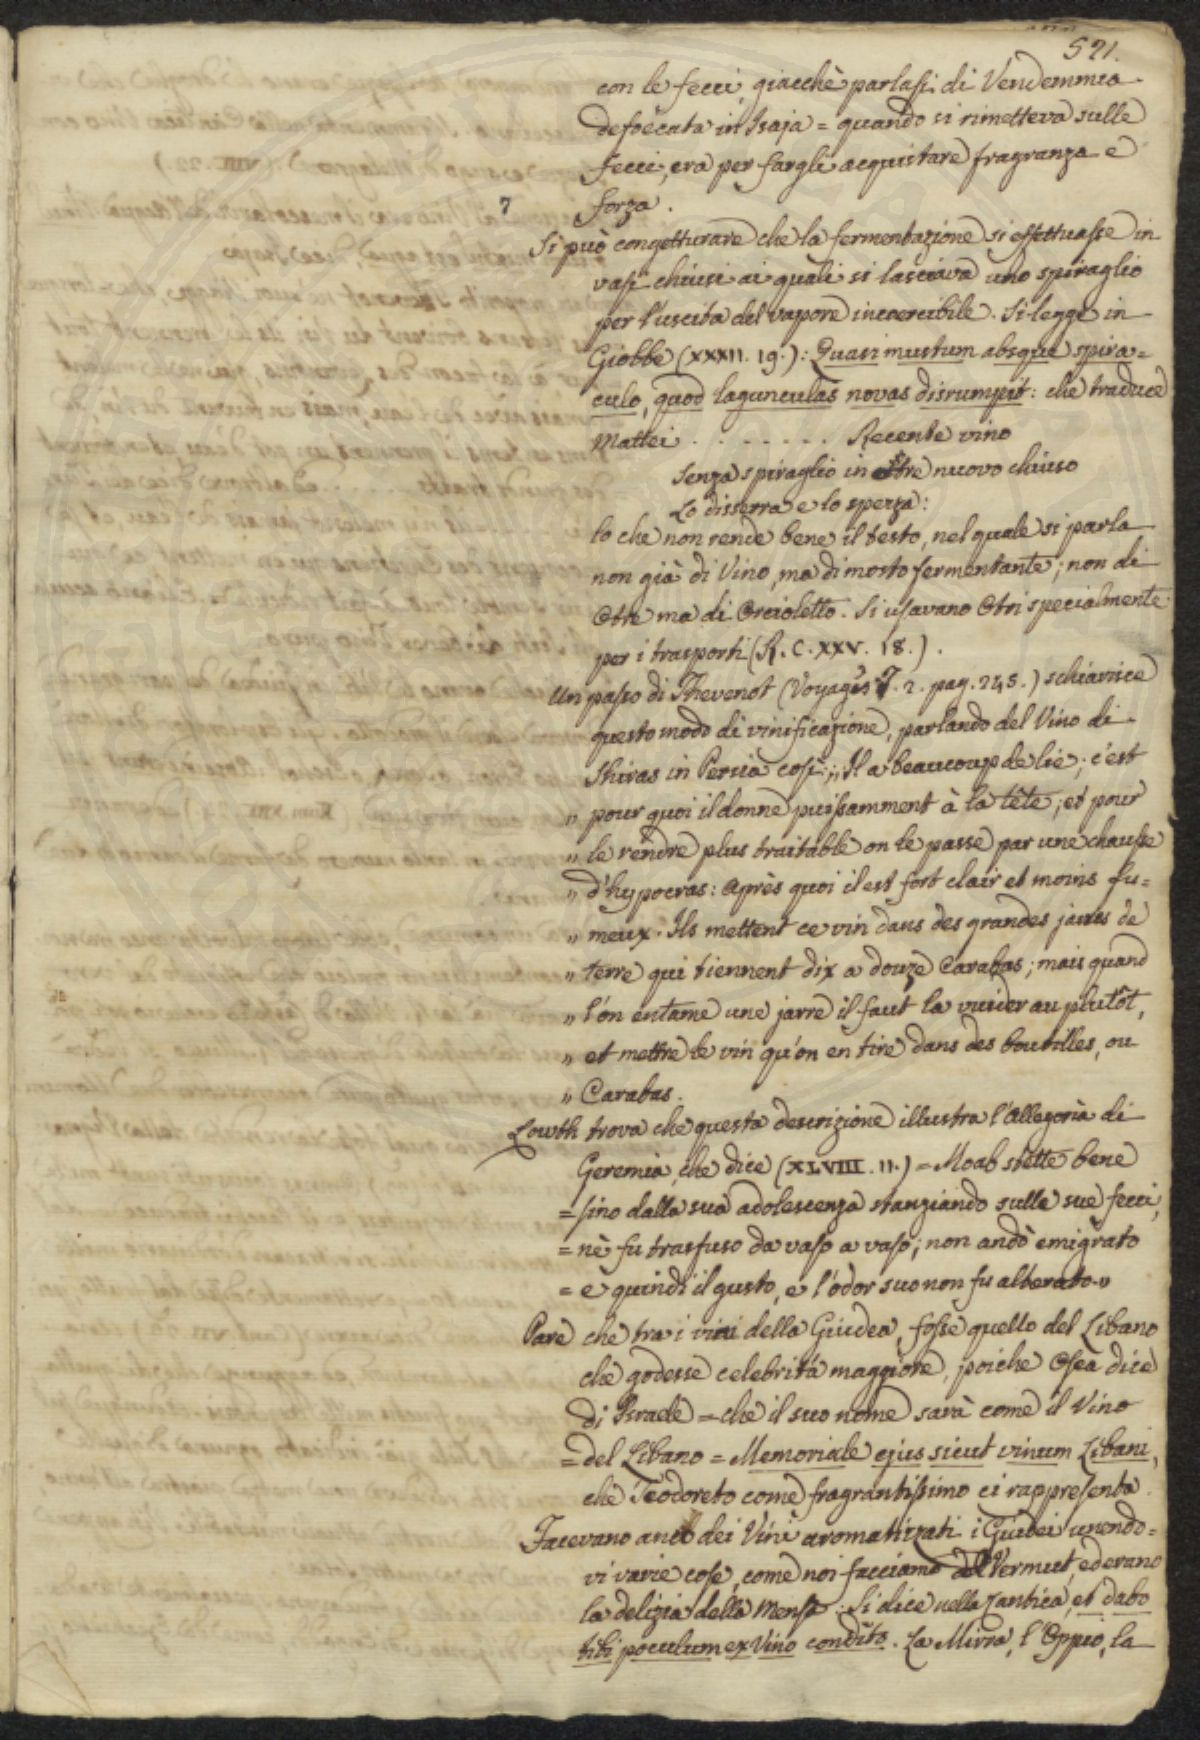 521.
con le fecci, giacchè parlasi di Vendemmia
defoecata in Isaja = quando si rimetteva sulle
fecci, era per fargli acquistare fragranza e
7 forza.
Si può congetturare che la fermentazione si effettuasse in
vasi chiusi ai quali si lasciava uno spiraglio
per l'uscita del vapore incoercibile. Si legge in
Giobbe (XXXII. 19.): Quasi mustum absque spira=
culo, quod lagunculas novas disrumpit: che traduce
Mattei . . . . . . . . Recente vino
senza spiraglio in otre nuovo chiuso
Lo disserra e lo spezza:
lo che non rende bene il testo, nel quale si parla
non già di Vino, ma di mosto fermentante; non di
Otre ma di Orcioletto. Si usavano Otri specialmente
per i trasporti (R. C. XXV. 18.).
Un passo di Thevenot (Voyages T. 2. pag. 245.) schiarisce
questo modo di vinificazione, parlando del Vino di
Shiras in Persia così: „ Il a beaucoup de lie; c'est
„ pour quoi il donne puissamment à la tête; et pour
„ le rendre plus traitable on le passe par une chausse
„ d'hypocras: après quoi il est fort clair et moins fu=
„ meux. Ils mettent ce vin dans des grandes jarres de
„ terre qui tiennent dix a douze Carabas; mais quand
„ l'on entame une jarre il faut la vuider au plutôt,
„ et mettre le vin qu'on en tire dans des boutilles, ou
„ Carabas.
Lowth trova che questa descrizione illustra l'Allegoria di
Geremia, che dice (XLVIII. 11.) = Moab stette bene
= sino dalla sua adolescenza stanziando sulle sue fecci,
= nè fu trasfuso da vaso a vaso; non andò emigrato
= e quindi il gusto, e l'odor suo non fu alterato „
Pare che tra i vini della Giudea, fosse quello del Libano
che godesse celebrità maggiore, poiche Osea dice
di Israele = che il suo nome sarà come il Vino
= del Libano = Memoriale ejus sicut vinum Libani,
che Teodoreto come fragrantissimo ci rappresenta.
Facevano anco dei Vini aromatizzati i Giudei unendo=
vi varie cose, come noi facciamo al Vermut, ed erano
la delizia della Mensa. Si dice nella Cantica, et dabo
tibi poculum ex Vino condito. La Mirra, l'Oppio, la